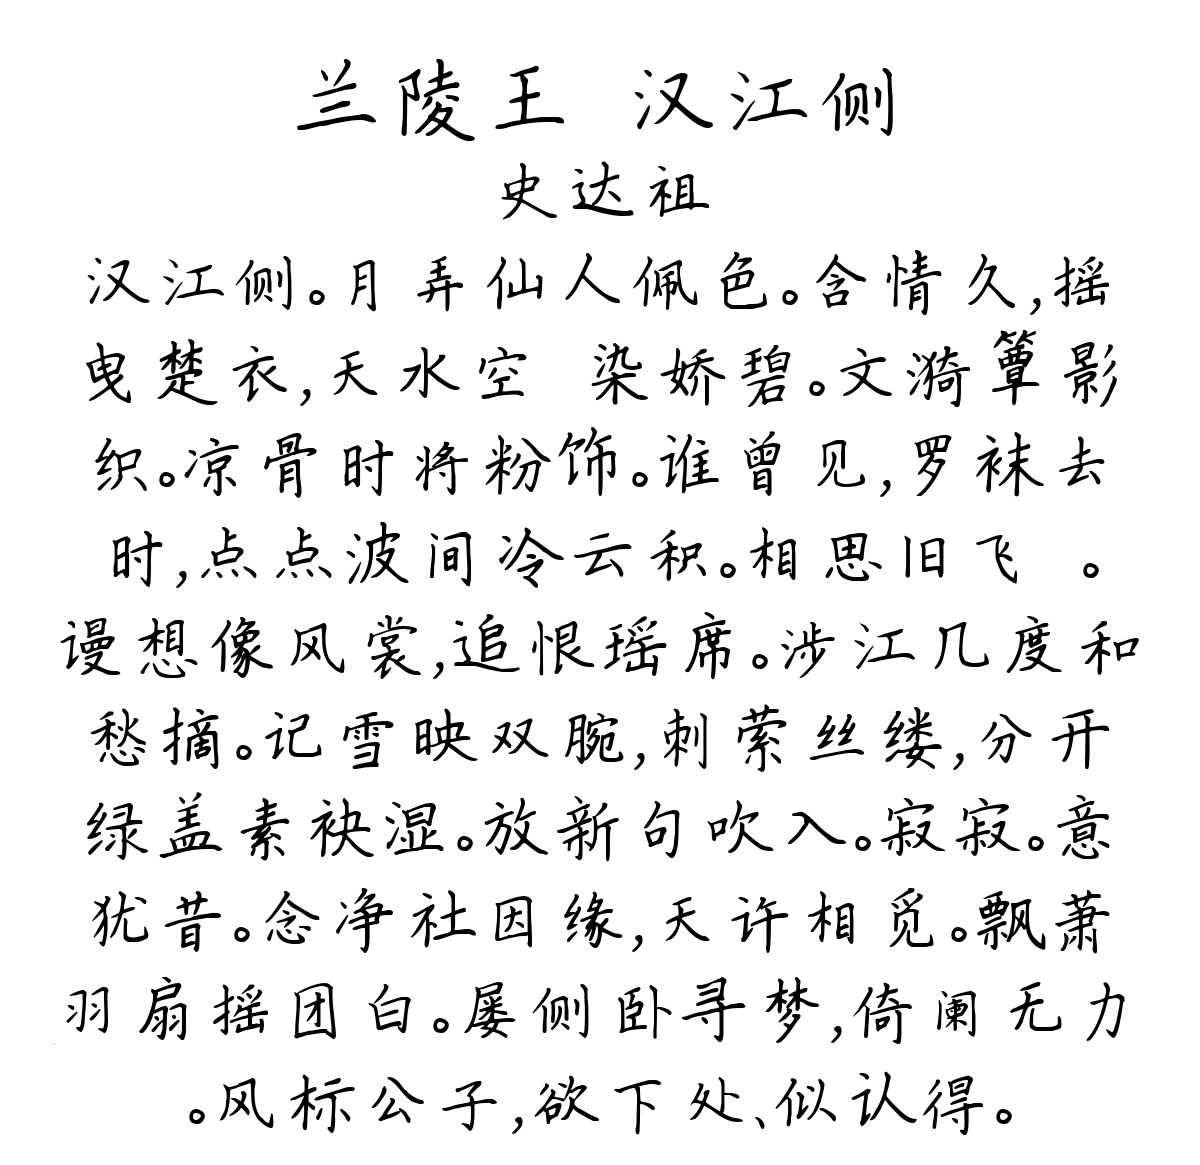 兰陵王 汉江侧
史达祖
汉江侧。月弄仙人佩色。含情久,摇
曳楚衣,天水空 染娇碧。文漪簟影
织。凉骨时将粉饰。谁曾见,罗袜去
时,点点波间冷云积。相思旧飞 。
谩想像风裳,追恨瑶席。涉江几度和
愁摘。记雪映双腕,刺萦丝缕,分开
绿盖素袂湿。放新句吹入。寂寂。意
犹昔。念净社因缘,天许相觅。飘萧
羽扇摇团白。屡侧卧寻梦,倚阑无力
。风标公子,欲下处、似认得。